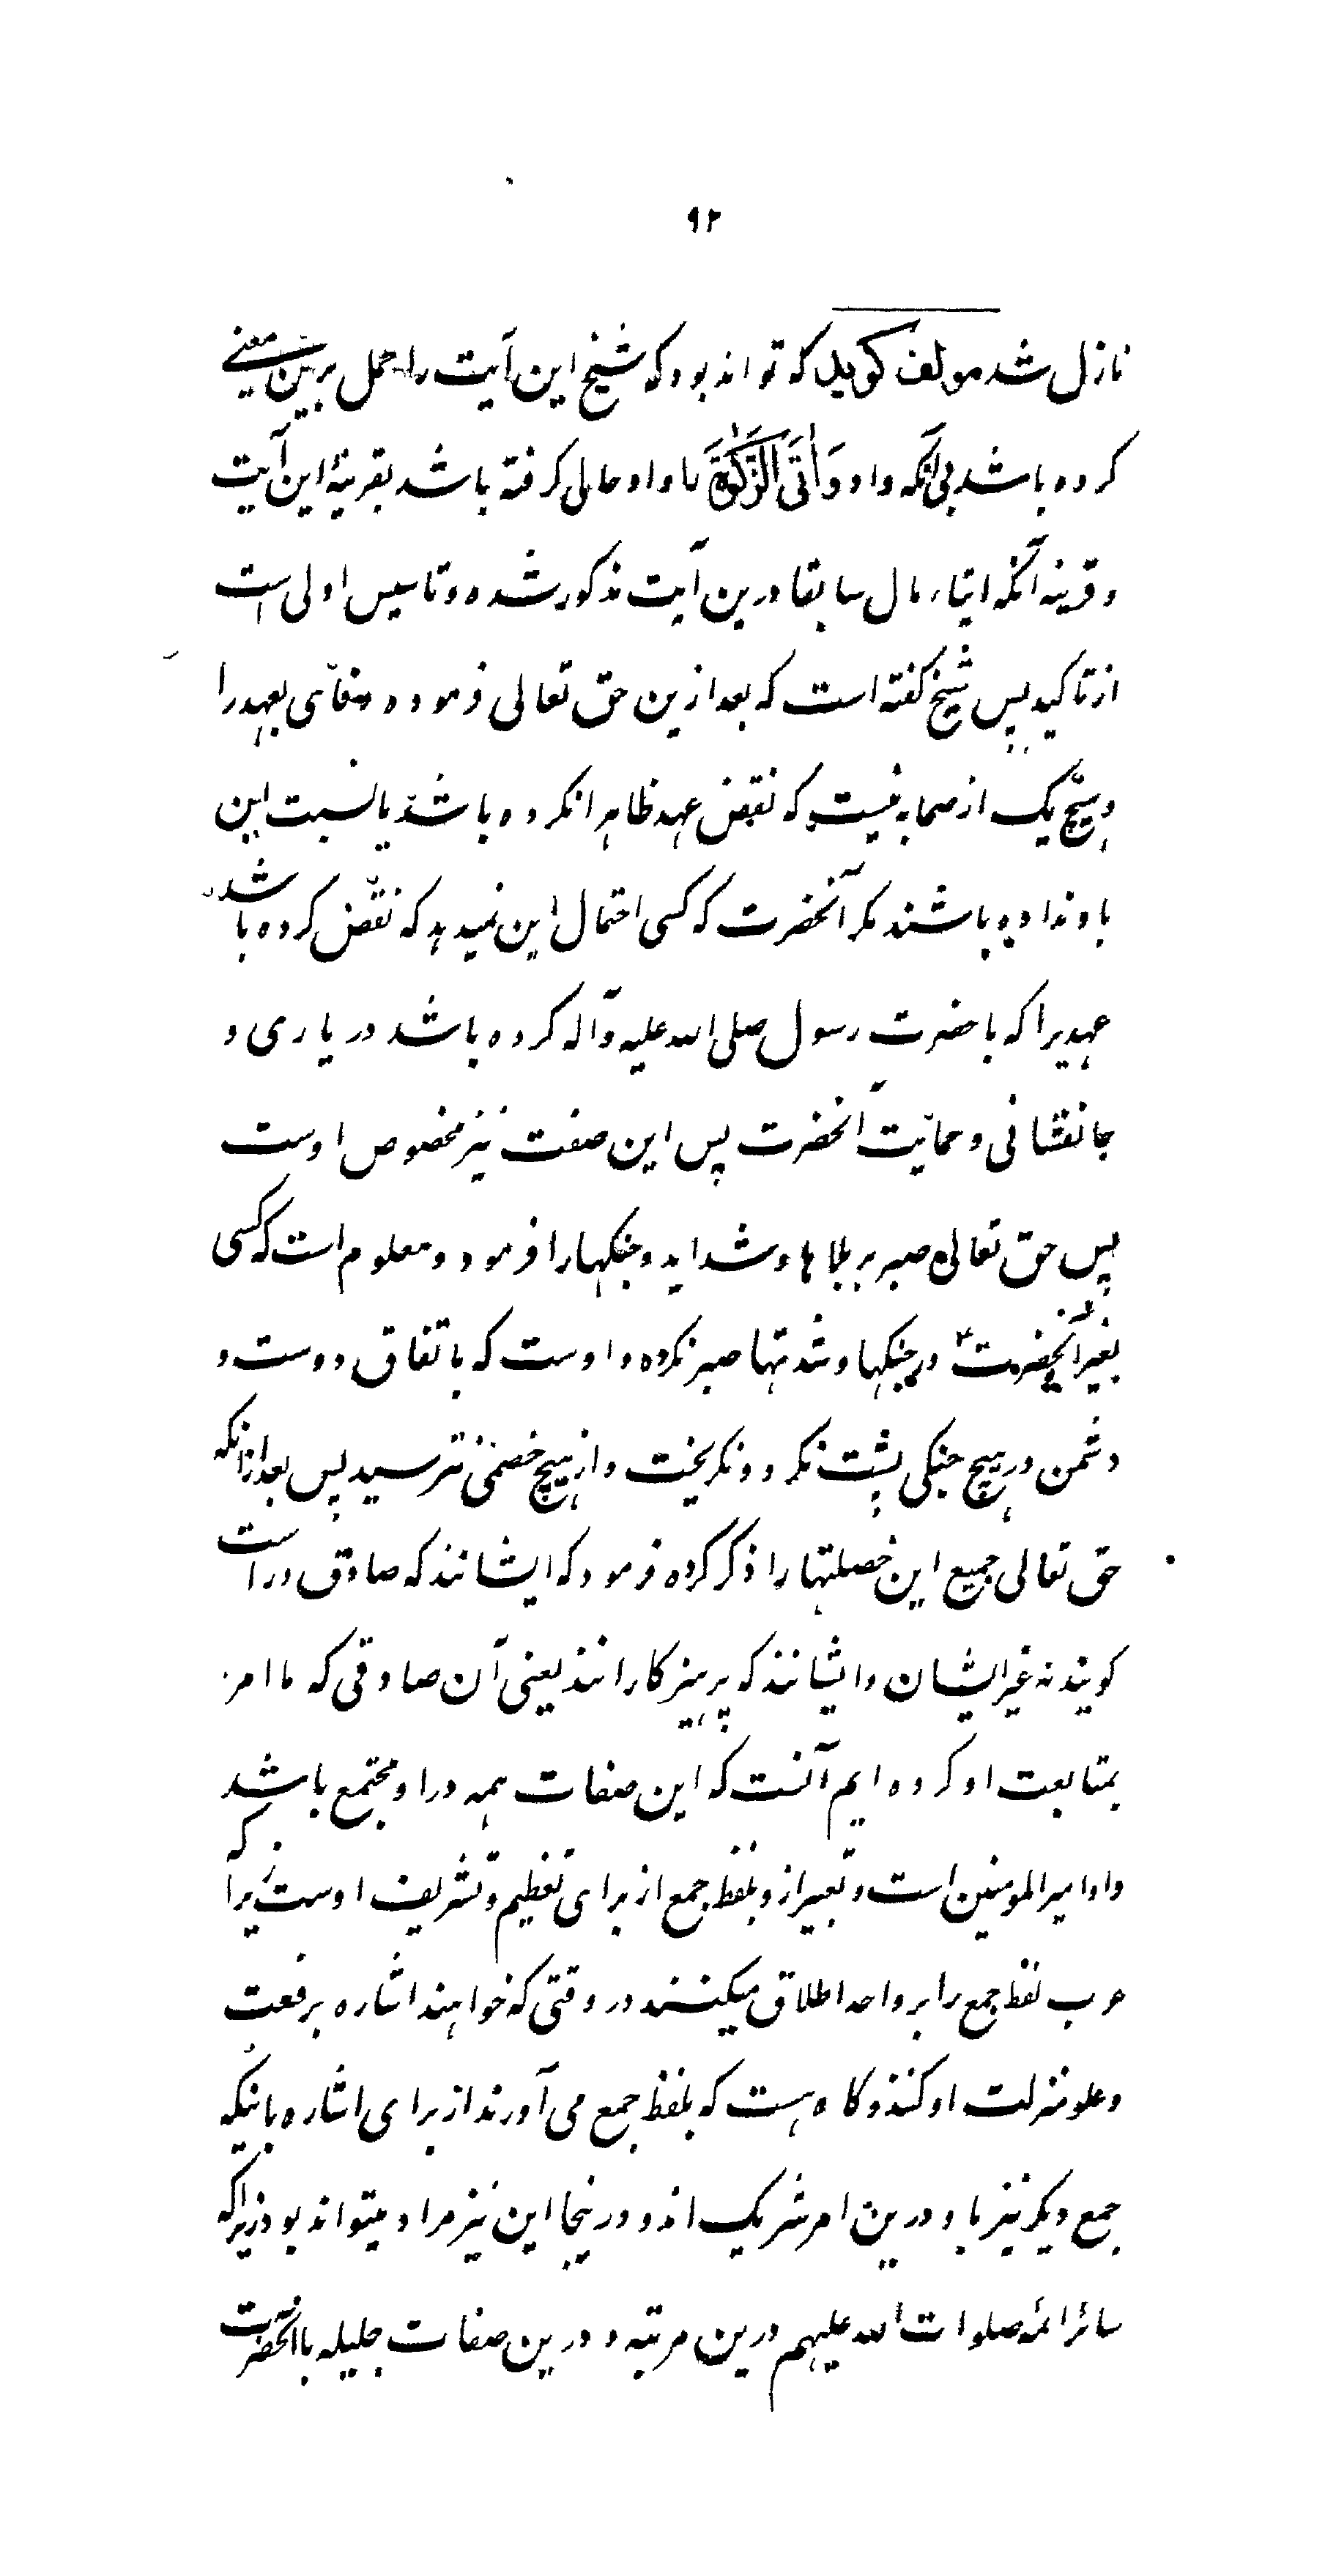 ۹۲
نازل شد مولف کوید که تواند بود که شیخ این آیت را حمل برین معنی
کرده باشد بی آنکه واو وَاٰتَی الزَّکٰوةَ را واو حالی کرفته باشد بقرینهٔ این آیت
و قرینه آنکه ایتاء مال سابقا درین آیت مذکور شده و تاسیس اولی است
از تاکید پس شیخ کفته است که بعد ازین حق تعالی فرموده وفای بعهد را
و هیچ یک از صحابه نیست که نقض عهد ظاهرا نکرده باشد یا نسبت این
باو نداده باشند مکر آنحضرت که کسی احتمال این نمیدهد که نقض کرده باشد
عهدیرا که با حضرت رسول صلی الله علیه و آله کرده باشد در یاری و
جانفشانی و حمایت آنحضرت پس این صفت نیز مخصوص اوست
پس حق تعالی صبر بر بلاها و شداید و جنکها را فرمود و معلوم است که کسی
بغیر آنحضرت در جنکها و شدتها صبر نکرده و اوست که باتفاق دوست و
دشمن در هیچ جنکی پشت نکرد و نکریخت و از هیچ خصمی نترسید پس بعد ازانکه
حق تعالی جمیع این خصلتها را ذکر کرده فرمود که ایشانند که صادق و راست
کویند نه غیر ایشان و ایشانند که پرهیزکارانند یعنی آن صادقی که ما امر
بمتابعت او کرده ایم آنست که این صفات همه در او مجتمع باشد
و او امیر المومنین است و تعبیر ازو بلفظ جمع از برای تعظیم و تشریف اوست زیرا که
عرب لفظ جمع را بر واحد اطلاق میکنند در وقتی که خواهند اشاره برفعت
و علو منزلت او کنند و کاه هست که بلفظ جمع می آورند از برای اشاره باینکه
جمع دیکر نیز با و درین امر شریک اند و درینجا این نیز مراد میتواند بود زیرا که
سائر ائمه صلوات الله علیهم درین مرتبه و درین صفات جلیله با آنحضرت